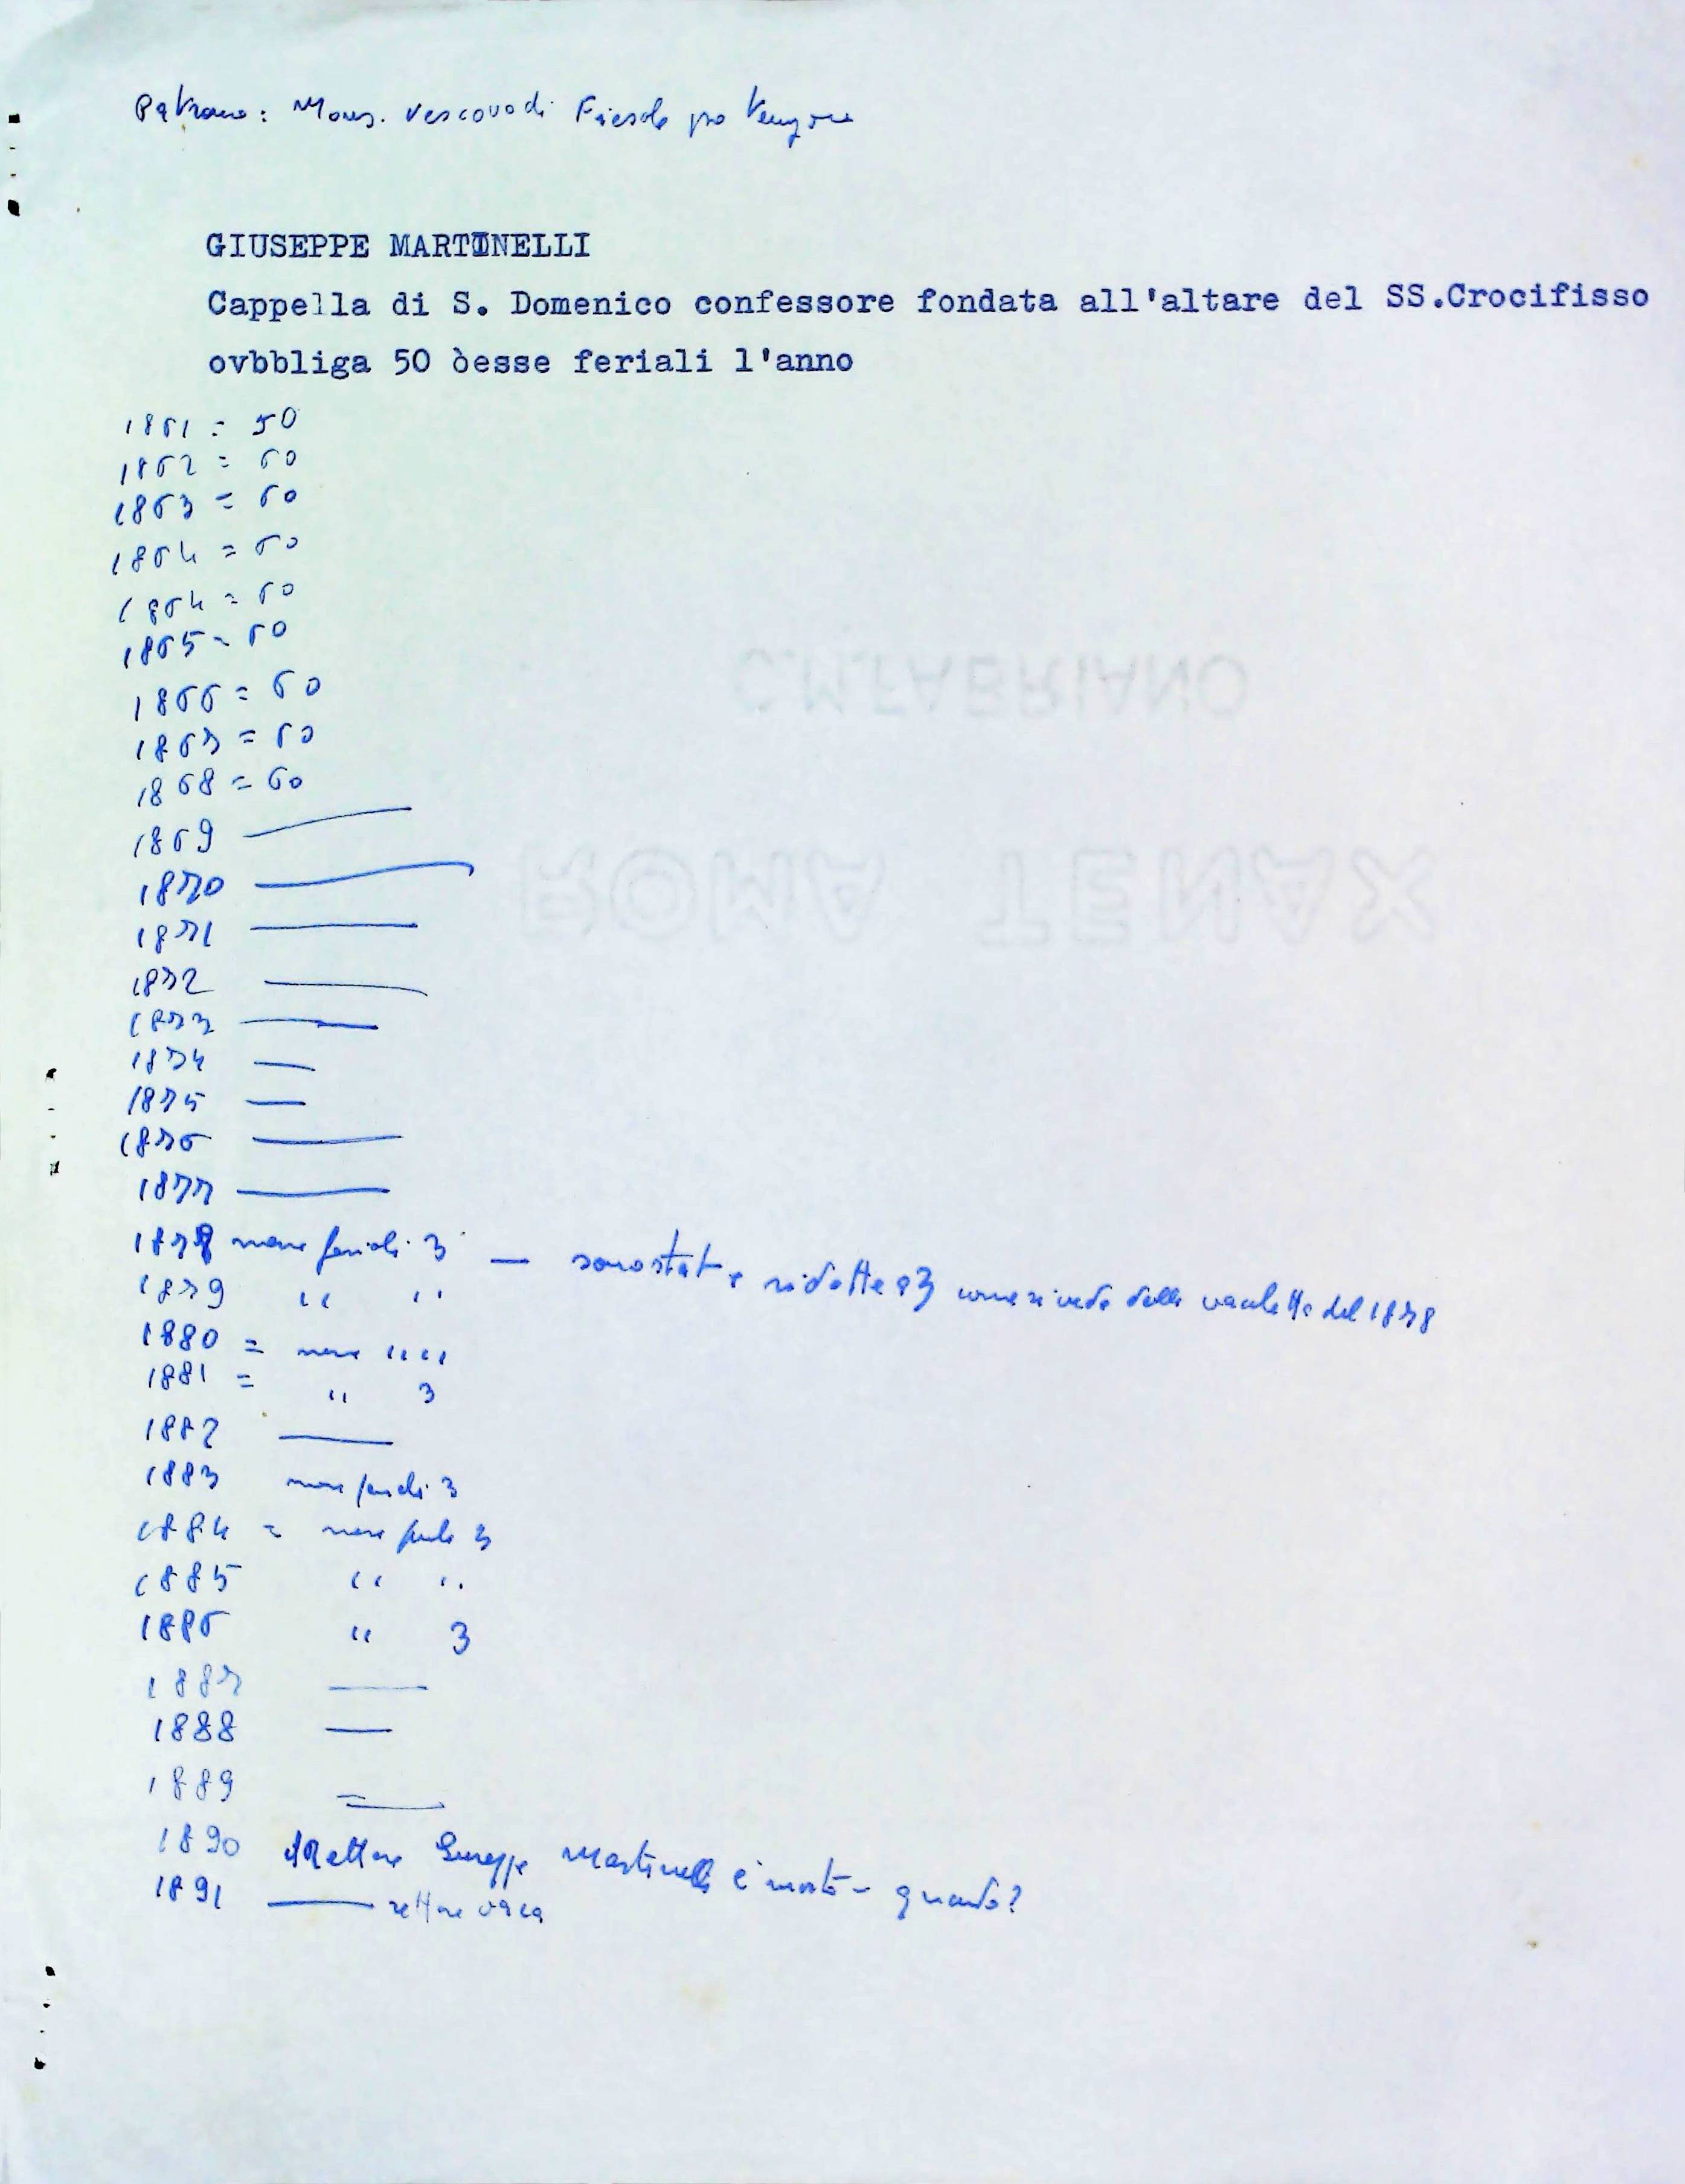 Patrono: Mons. Vescovo di Fiesole pro tempore
GIUSEPPE MARTINELLI
Cappella di S. Domenico confessore fondata all'altare del SS.Crocifisso
ovbbliga 50 òesse feriali l'anno
1861 = 50
1862 = 60
1863 = 60
1864 = 60
1864 = 60
1865 = 60
1866 = 60
1867 = 60
1868 = 60
1869 —
1870 —
1871 —
1872 —
1873 —
1874 —
1875 —
1876 —
1877 —
1878 messe feriali 3 — sono state ridotte a 3 come si vede dalla vacchetta del 1878
1879 " "
1880 = messe " "
1881 = " 3
1882 —
1883 messe feriali 3
1884 = messe feriali 3
1885 " "
1886 " 3
1887 —
1888 —
1889 =
1890 il Rettore Giuseppe Martinelli è morto - quando?
1891 — rettore vaca
C.M.FABRIANO
ROMA TENAX